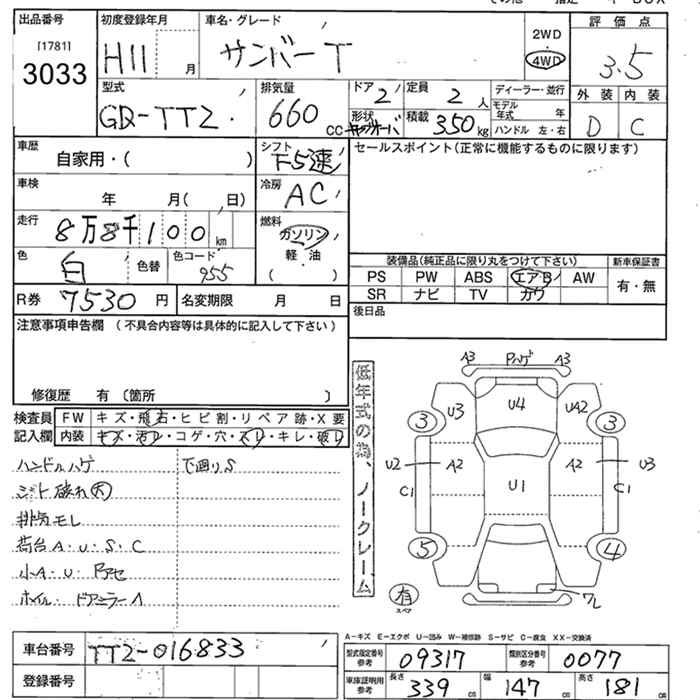 出品番号 [1781] 3033
初度登録年月 H11 月
車名・グレード サンバーT
2WD 4WD
評価点 3.5
外装 内装
D C
型式 GD-TT2
排気量 660 CC
ドア 2 定員 2 人
形状 積載 350 kg
ディーラー・並行
モデル年式 年
ハンドル 左・右
車歴 自家用・( )
シフト F5速
セールスポイント(正常に機能するものに限ります)
車検 年 月( 日)
冷房 AC
走行 8万8千100 km
燃料 ガソリン 軽油 ( )
色 白 色替 色コード 955
装備品(純正品に限り丸をつけて下さい) 新車保証書
PS PW ABS エアB AW 有・無
SR ナビ TV カワ
R券 7530 円 名変期限 月 日
後日品
注意事項申告欄(不具合内容等は具体的に記入して下さい)
修復歴 有〔箇所 〕
低年式の為、ノークレーム
検査員 FW キズ・飛石・ヒビ割・リペア跡・X要
記入欄 内装 キズ・汚レ・コゲ・穴・スレ・キレ・破レ
ハンドルハゲ 下廻りS
シート破れ大
排気モレ
荷台A・U・S・C
小A・U・
ホイル・ドアミラーA
A3 A3
U3 U4 UA2
3 3
U2 A2 A2 U3
C1 U1 C1
5 4
有 スペア
A-キズ E-エクボ U-凹み W-補修跡 S-サビ C-腐食 XX-交換済
車台番号 TT2-016833
型式指定番号 参考 09317 類別区分番号 参考 0077
登録番号
車庫証明用 参考 長さ 339 cm 幅 147 cm 高さ 181 cm